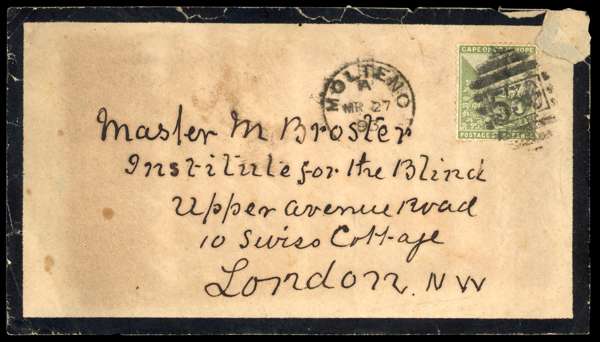 CAPE OF GOOD HOPE
POSTAGE
MOLTENO
A
MR 27
95
Master M Broster
Institute for the Blind
Upper avenue Road
10 Swiss Cottage
London. NW